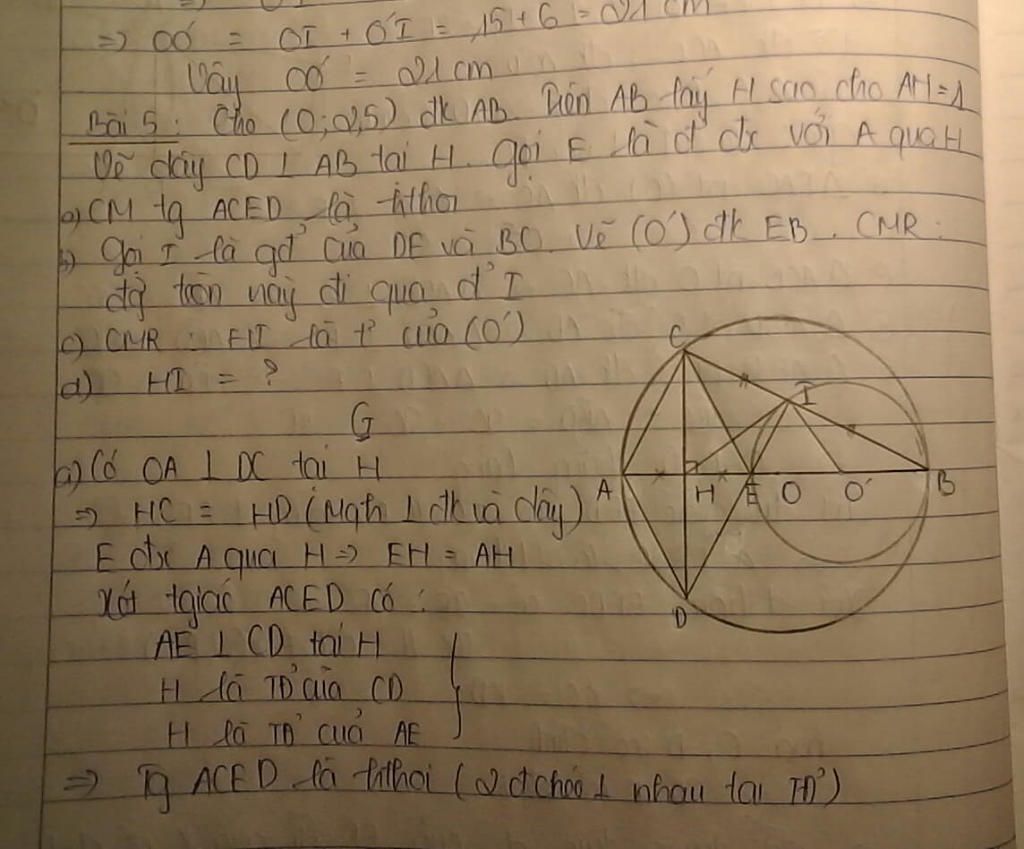 => OO' = OI + O'I = 15 + 6 = 21 cm
Vậy OO' = 21 cm
Bài 5: Cho (O; 2,5) đk AB. Trên AB lấy H sao cho AH = 1
Vẽ dây CD ⊥ AB tại H. gọi E là đ' đx với A qua H
a) CM tg ACED là hthoi
b) gọi I là gđ' của DE và BC. Vẽ (O') đk EB. CMR:
đg tròn này đi qua đ' I
c) CMR: HI là t² của (O')
d) HI = ?
G
a) Có OA ⊥ DC tại H
=> HC = HD (Mqh ⊥ đk và dây)
E đx A qua H => EH = AH
Xét tgiác ACED có:
AE ⊥ CD tại H
H là TĐ' của CD
H là TĐ' của AE
=> Tg ACED là hthoi (2 đchéo ⊥ nhau tại TĐ')
C
I
A
H
E
O
O'
B
D